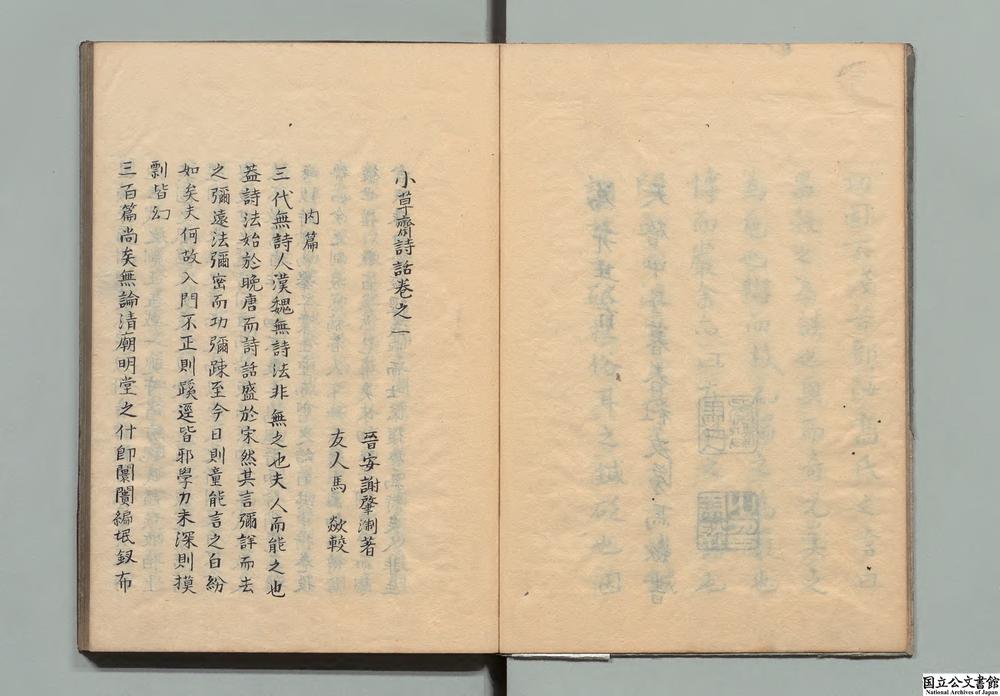 小草齋詩話卷之一
晉安謝肇淛著
友人馬歘較
內篇
三代無詩人漢魏無詩法非無之也夫人而能之也
葢詩法始於晩唐而詩話盛於宋然其言彌詳而去
之彌遠法彌密而功彌踈至今日則童能言之白紛
如矣夫何故入門不正則蹊逕皆邪學力未深則摸
剽皆幻
三百篇尚矣無論清廟明堂之什即闤闠編氓釵布
国立公文書館
National Archives of Japan